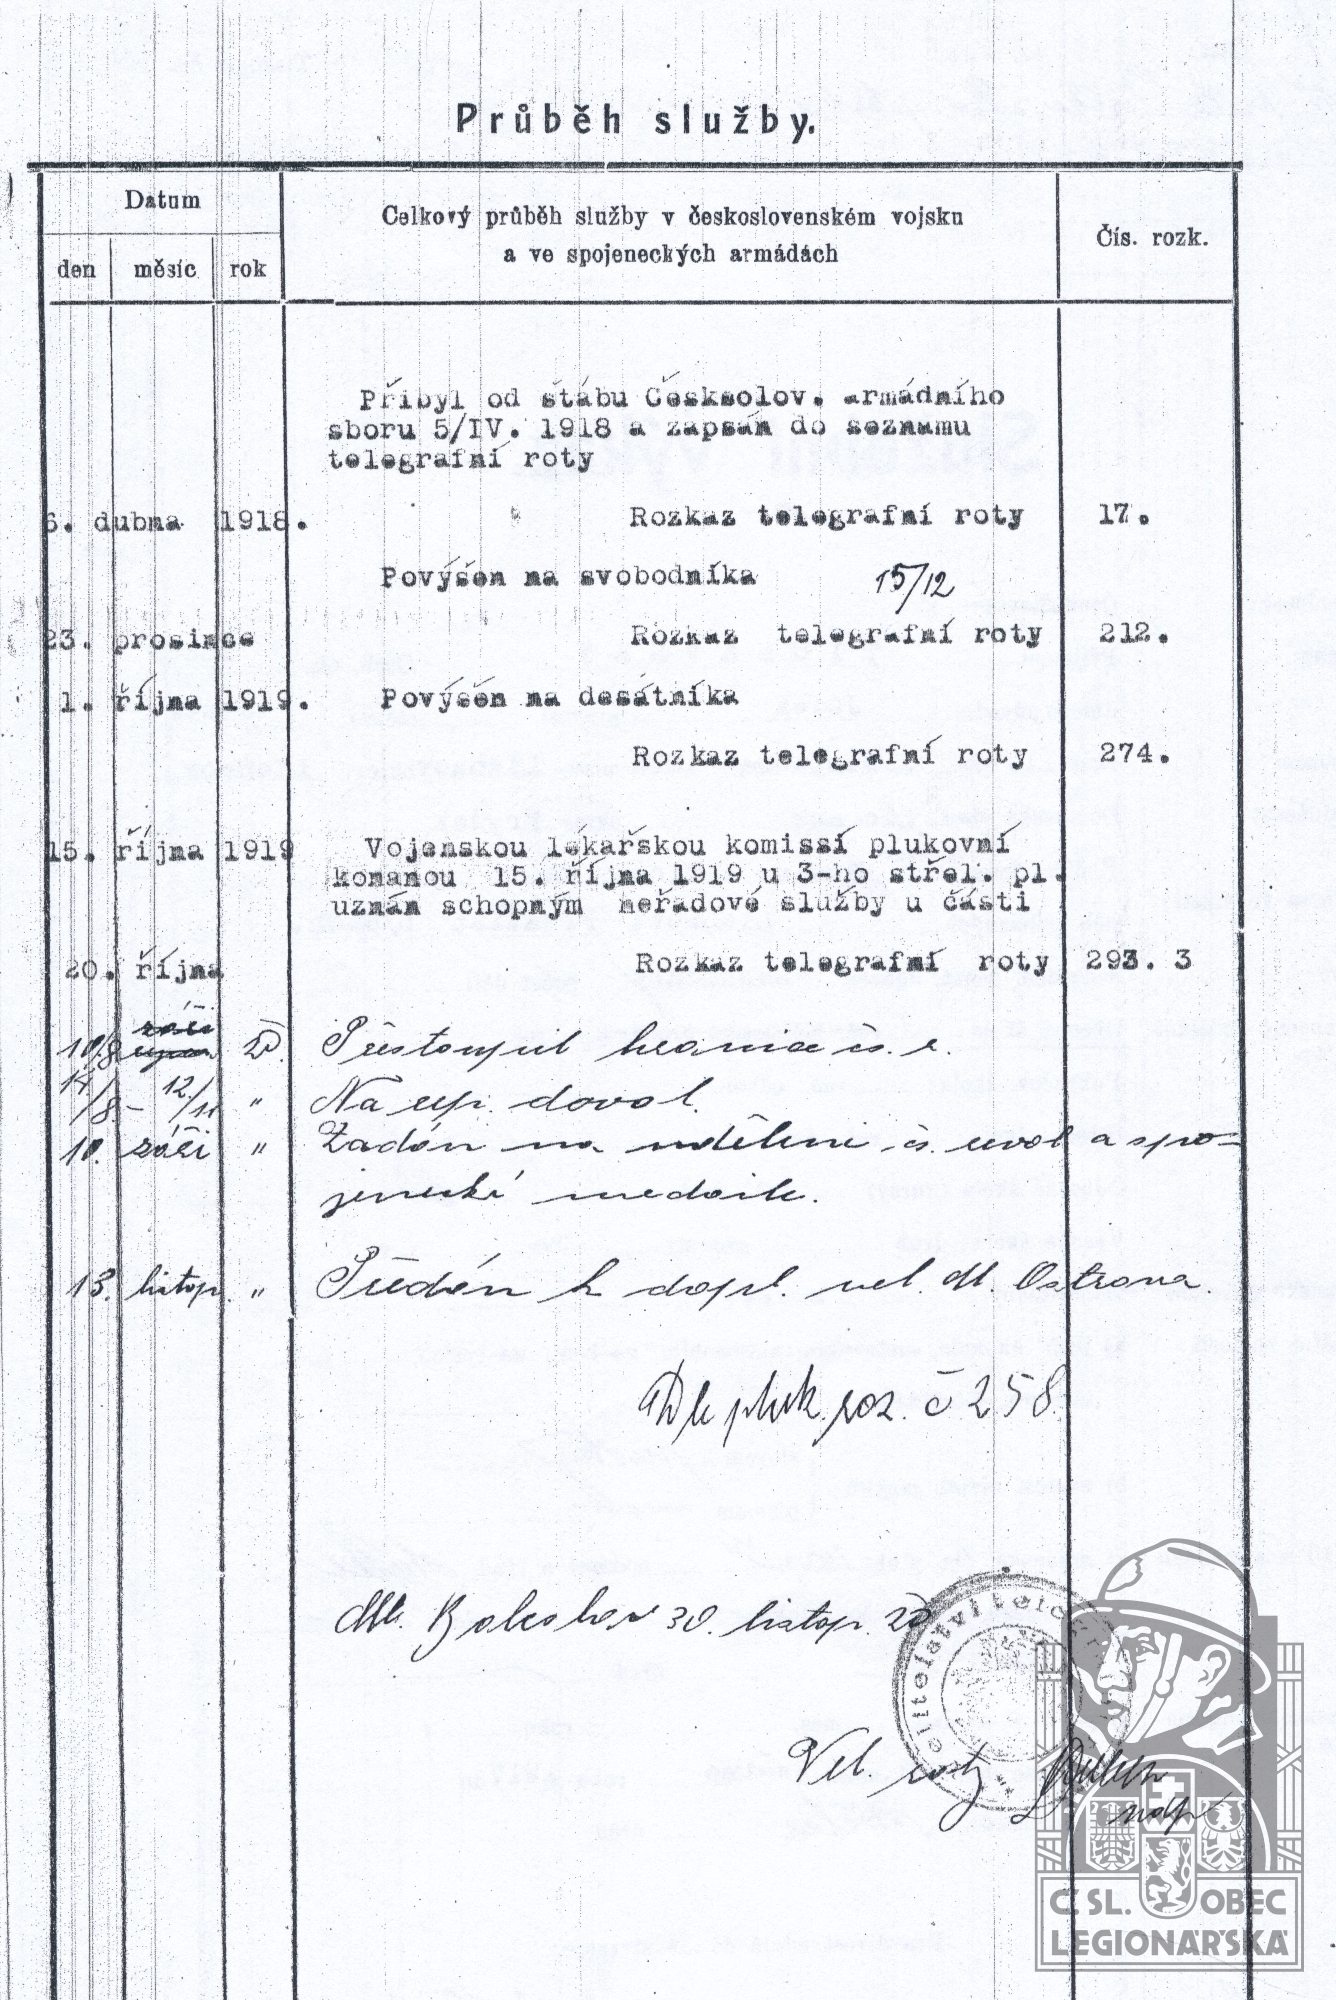 Průběh služby.
Datum
Celkový průběh služby v československém vojsku
a ve spojeneckých armádách
Čís. rozk.
den měsíc rok
Přibyl od štábu Česksolov. armádního
sboru 5/IV. 1918 a zapsán do seznamu
telegrafní roty
6. dubna 1918. Rozkaz telegrafní roty 17.
Povýšen na svobodníka 15/12
23. prosince Rozkaz telegrafní roty 212.
1. října 1919. Povýšen na desátníka
Rozkaz telegrafní roty 274.
15. října 1919 Vojenskou lékařskou komissí plukovní
konanou 15. října 1919 u 3-ho střel. pl.
uznán schopným neřadové služby u části
20. října Rozkaz telegrafní roty 293. 3
10/8 20. Přestoupil hranice čs. r.
14/8 – 12/11 " Na dovol.
10. září " Žádán na udělení čs. a spo-
jenecké medaile.
13. listop. " Předán k dopl. vel. M. Ostrava.
Dle pluk. roz. č 258.
Ml. Boleslav 30. listop. 20
Vel. roty
Č. SL. OBEC
LEGIONÁŘSKÁ